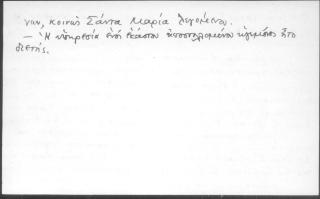 νων, κοινῶς Σάντα Μαρία λεγομένου.
— Ἡ ὑπηρεσία ἑνὸς ἑκάστου ἀποστελλομένου ἡγεμόνος ἦτο
διετής.